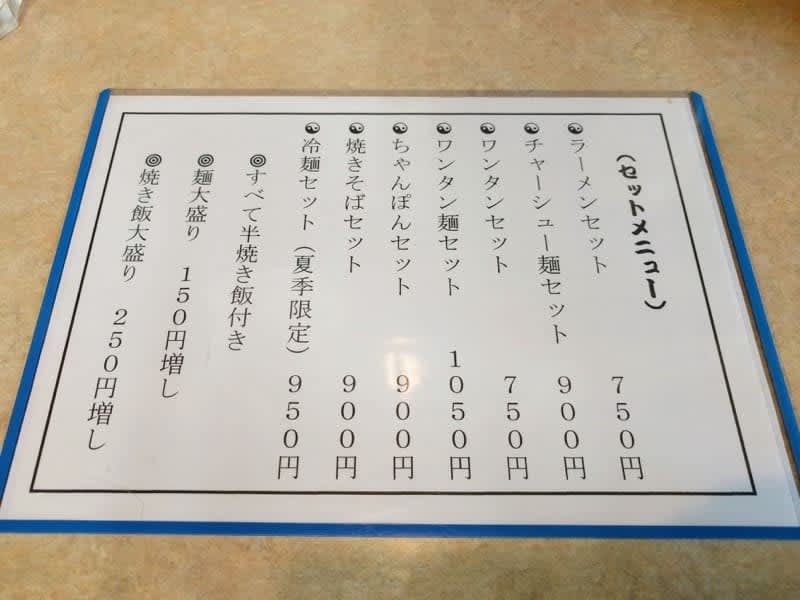 （セットメニュー）
ラーメンセット　７５０円
チャーシュー麺セット　９００円
ワンタンセット　７５０円
ワンタン麺セット　１０５０円
ちゃんぽんセット　９００円
焼きそばセット　９００円
冷麺セット（夏季限定）９５０円
◎すべて半焼き飯付き
◎麺大盛り　１５０円増し
◎焼き飯大盛り　２５０円増し